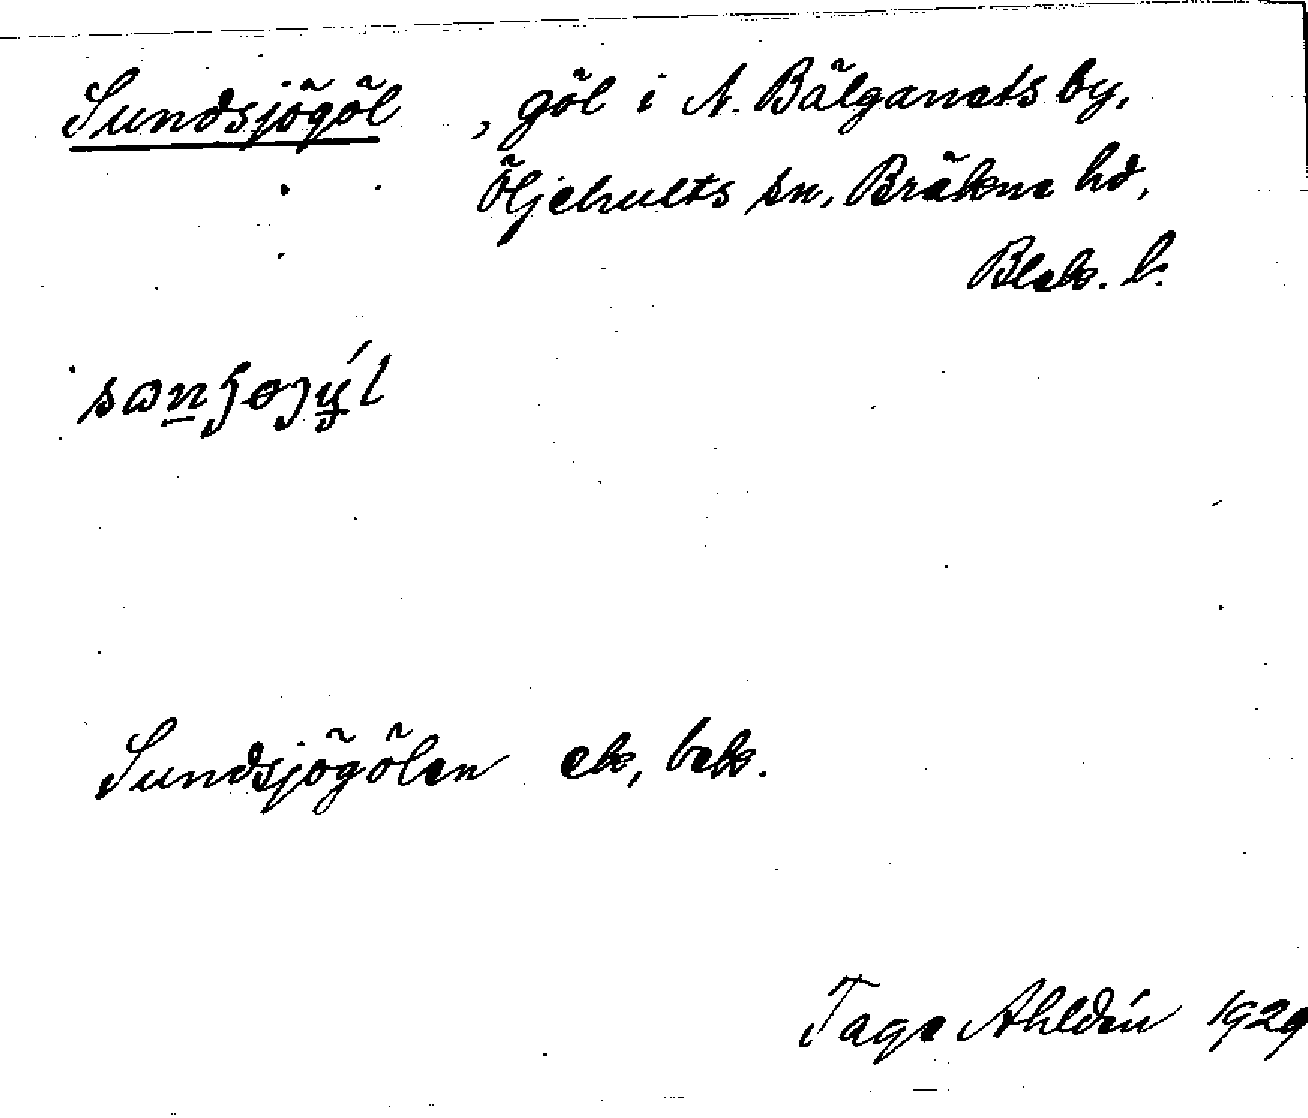 Sundsjögöl, göl i N. Bälganets by,
Öljehults sn, Bräkne hd,
Blek. l.
Sundsjögölen ek, bek.
Tage Ahldén 1929